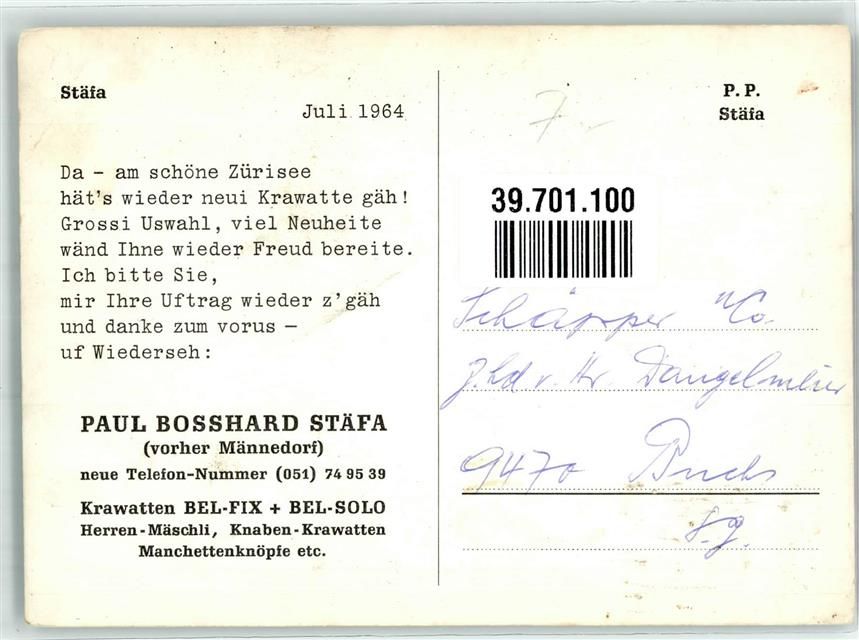 Stäfa
Juli 1964
Da – am schöne Zürisee
hät's wieder neui Krawatte gäh!
Grossi Uswahl, viel Neuheite
wänd Ihne wieder Freud bereite.
Ich bitte Sie,
mir Ihre Uftrag wieder z'gäh
und danke zum vorus –
uf Wiederseh:
PAUL BOSSHARD STÄFA
(vorher Männedorf)
neue Telefon-Nummer (051) 74 95 39
Krawatten BEL-FIX + BEL-SOLO
Herren-Mäschli, Knaben-Krawatten
Manchettenknöpfe etc.
P. P.
Stäfa
7.-
39.701.100
Schäpper & Co.
z. Hd v. Hr Dangelmeier
9470 Buchs
S.G.